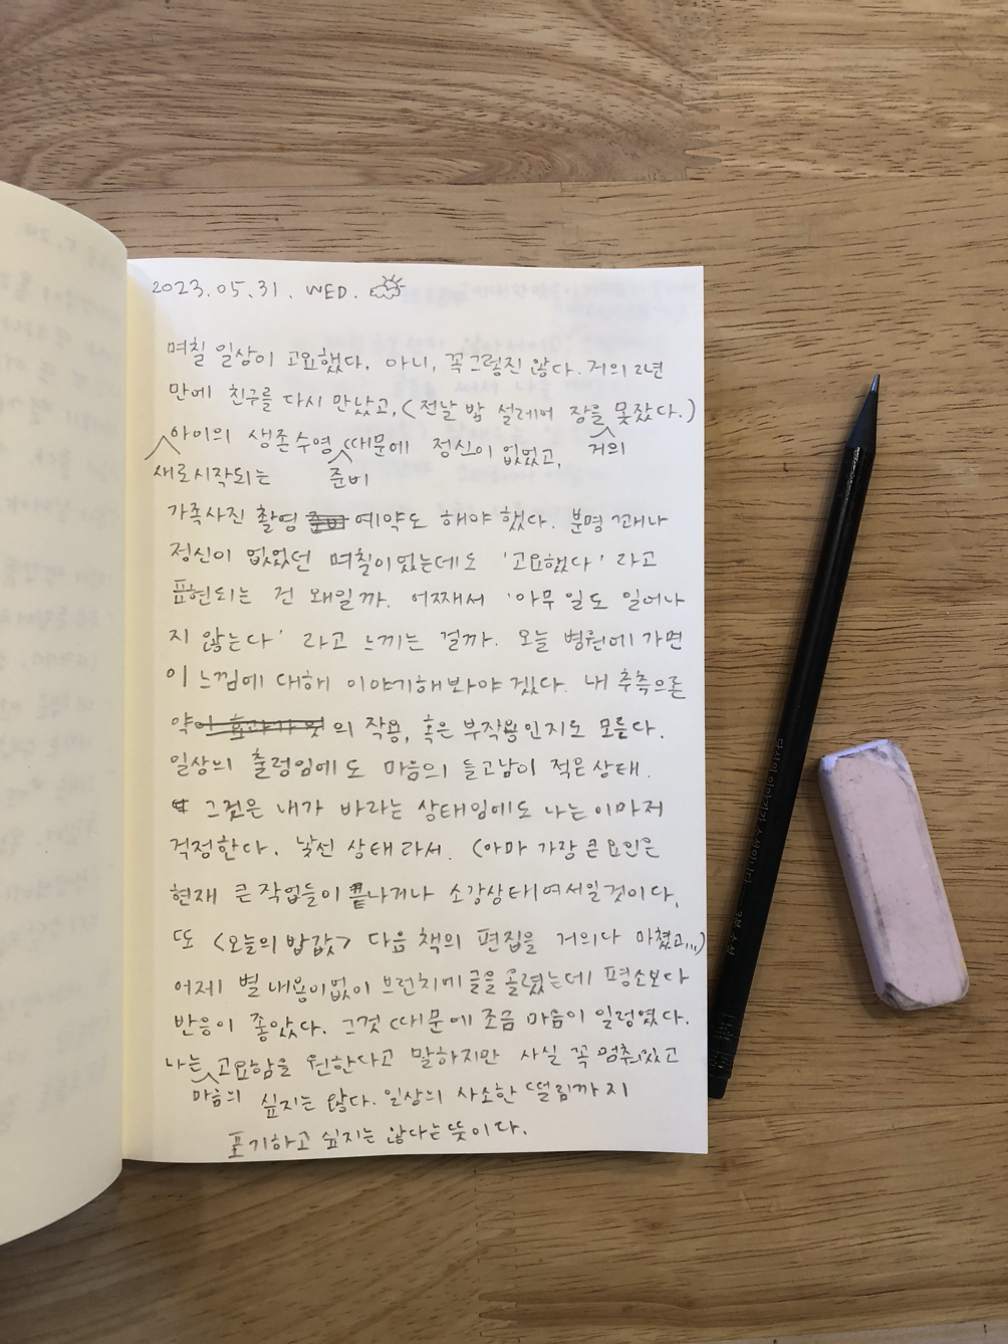 2023.05.31. WED.
며칠 일상이 고요했다. 아니, 꼭 그렇진 않다. 거의 2년
만에 친구를 다시 만났고, (전날 밤 설레어 잠을 못잤다.)
아이의 생존수영 때문에 정신이 없었고, 거의
새로시작되는 준비
가족사진 촬영 준비 예약도 해야 했다. 분명 꽤나
정신이 없었던 며칠이었는데도 '고요했다' 라고
표현되는 건 왜일까. 어째서 '아무 일도 일어나
지 않는다' 라고 느끼는 걸까. 오늘 병원에 가면
이 느낌에 대해 이야기해봐야 겠다. 내 추측으론
약이 효과가 의 작용, 혹은 부작용인지도 모른다.
일상의 출렁임에도 마음의 들고남이 적은 상태.
그것은 내가 바라는 상태임에도 나는 이마저
걱정한다. 낯선 상태라서. (아마 가장 큰 요인은
현재 큰 작업들이 끝나거나 소강상태여서일 것이다.
또 <오늘의 밥값> 다음 책의 편집을 거의다 마쳤고...)
어제 별 내용이없이 브런치에 글을 올렸는데 평소보다
반응이 좋았다. 그것 때문에 조금 마음이 일렁였다.
나는 고요함을 원한다고 말하지만 사실 꼭 멈춰있고
마음의 싶지는 않다. 일상의 사소한 떨림까지
포기하고 싶지는 않다는 뜻이다.